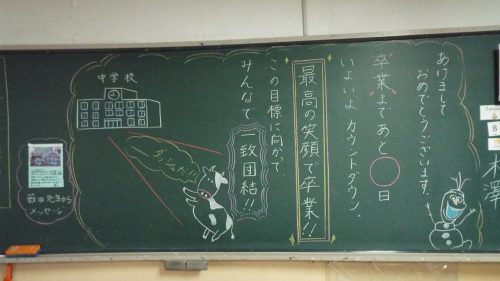 あけまして
おめでとうございます。
卒業まであと 日
いよいよ カウントダウン。
最高の笑顔で卒業!!
この目標に向かって
みんなで 一致団結!!
中学校
先生から
メッセージ
8